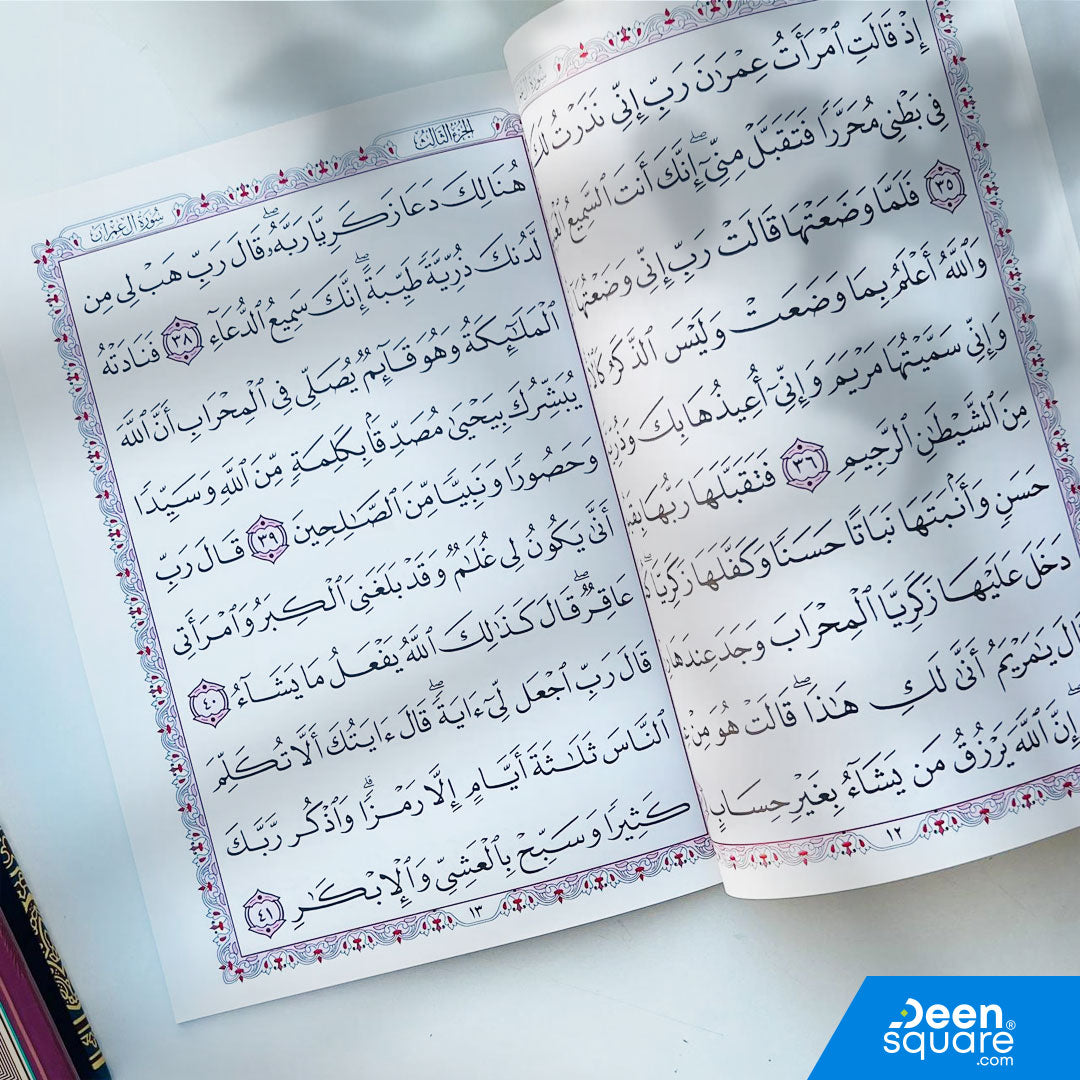 إِذْ قَالَتِ ٱمْرَأَتُ عِمْرَٰنَ رَبِّ إِنِّي نَذَرْتُ لَكَ
فِي بَطْنِي مُحَرَّرًا فَتَقَبَّلْ مِنِّيٓ ۖ إِنَّكَ أَنتَ ٱلسَّمِيعُ
٣٥ فَلَمَّا وَضَعَتْهَا قَالَتْ رَبِّ إِنِّي وَضَعْتُهَا
وَٱللَّهُ أَعْلَمُ بِمَا وَضَعَتْ وَلَيْسَ ٱلذَّكَرُ
وَإِنِّي سَمَّيْتُهَا مَرْيَمَ وَإِنِّيٓ أُعِيذُهَا بِكَ
مِنَ ٱلشَّيْطَٰنِ ٱلرَّجِيمِ ٣٦ فَتَقَبَّلَهَا رَبُّهَا
حَسَنٍ وَأَنۢبَتَهَا نَبَاتًا حَسَنًا وَكَفَّلَهَا زَكَرِيَّا
دَخَلَ عَلَيْهَا زَكَرِيَّا ٱلْمِحْرَابَ وَجَدَ عِندَهَا
قَالَ يَٰمَرْيَمُ أَنَّىٰ لَكِ هَٰذَا ۖ قَالَتْ هُوَ مِنْ
إِنَّ ٱللَّهَ يَرْزُقُ مَن يَشَآءُ بِغَيْرِ حِسَابٍ
١٢
الجزء الثالث
سورة آل عمران
هُنَالِكَ دَعَا زَكَرِيَّا رَبَّهُۥ ۖ قَالَ رَبِّ هَبْ لِي مِن
لَّدُنكَ ذُرِّيَّةً طَيِّبَةً ۖ إِنَّكَ سَمِيعُ ٱلدُّعَآءِ ٣٨ فَنَادَتْهُ
ٱلْمَلَٰٓئِكَةُ وَهُوَ قَآئِمٌ يُصَلِّي فِي ٱلْمِحْرَابِ أَنَّ ٱللَّهَ
يُبَشِّرُكَ بِيَحْيَىٰ مُصَدِّقًۢا بِكَلِمَةٍ مِّنَ ٱللَّهِ وَسَيِّدًا
وَحَصُورًا وَنَبِيًّا مِّنَ ٱلصَّٰلِحِينَ ٣٩ قَالَ رَبِّ
أَنَّىٰ يَكُونُ لِي غُلَٰمٌ وَقَدْ بَلَغَنِيَ ٱلْكِبَرُ وَٱمْرَأَتِي
عَاقِرٌ ۖ قَالَ كَذَٰلِكَ ٱللَّهُ يَفْعَلُ مَا يَشَآءُ ٤٠
قَالَ رَبِّ ٱجْعَل لِّيٓ ءَايَةً ۖ قَالَ ءَايَتُكَ أَلَّا تُكَلِّمَ
ٱلنَّاسَ ثَلَٰثَةَ أَيَّامٍ إِلَّا رَمْزًا ۗ وَٱذْكُر رَّبَّكَ
كَثِيرًا وَسَبِّحْ بِٱلْعَشِيِّ وَٱلْإِبْكَٰرِ ٤١
١٣
Deen
square®
.com